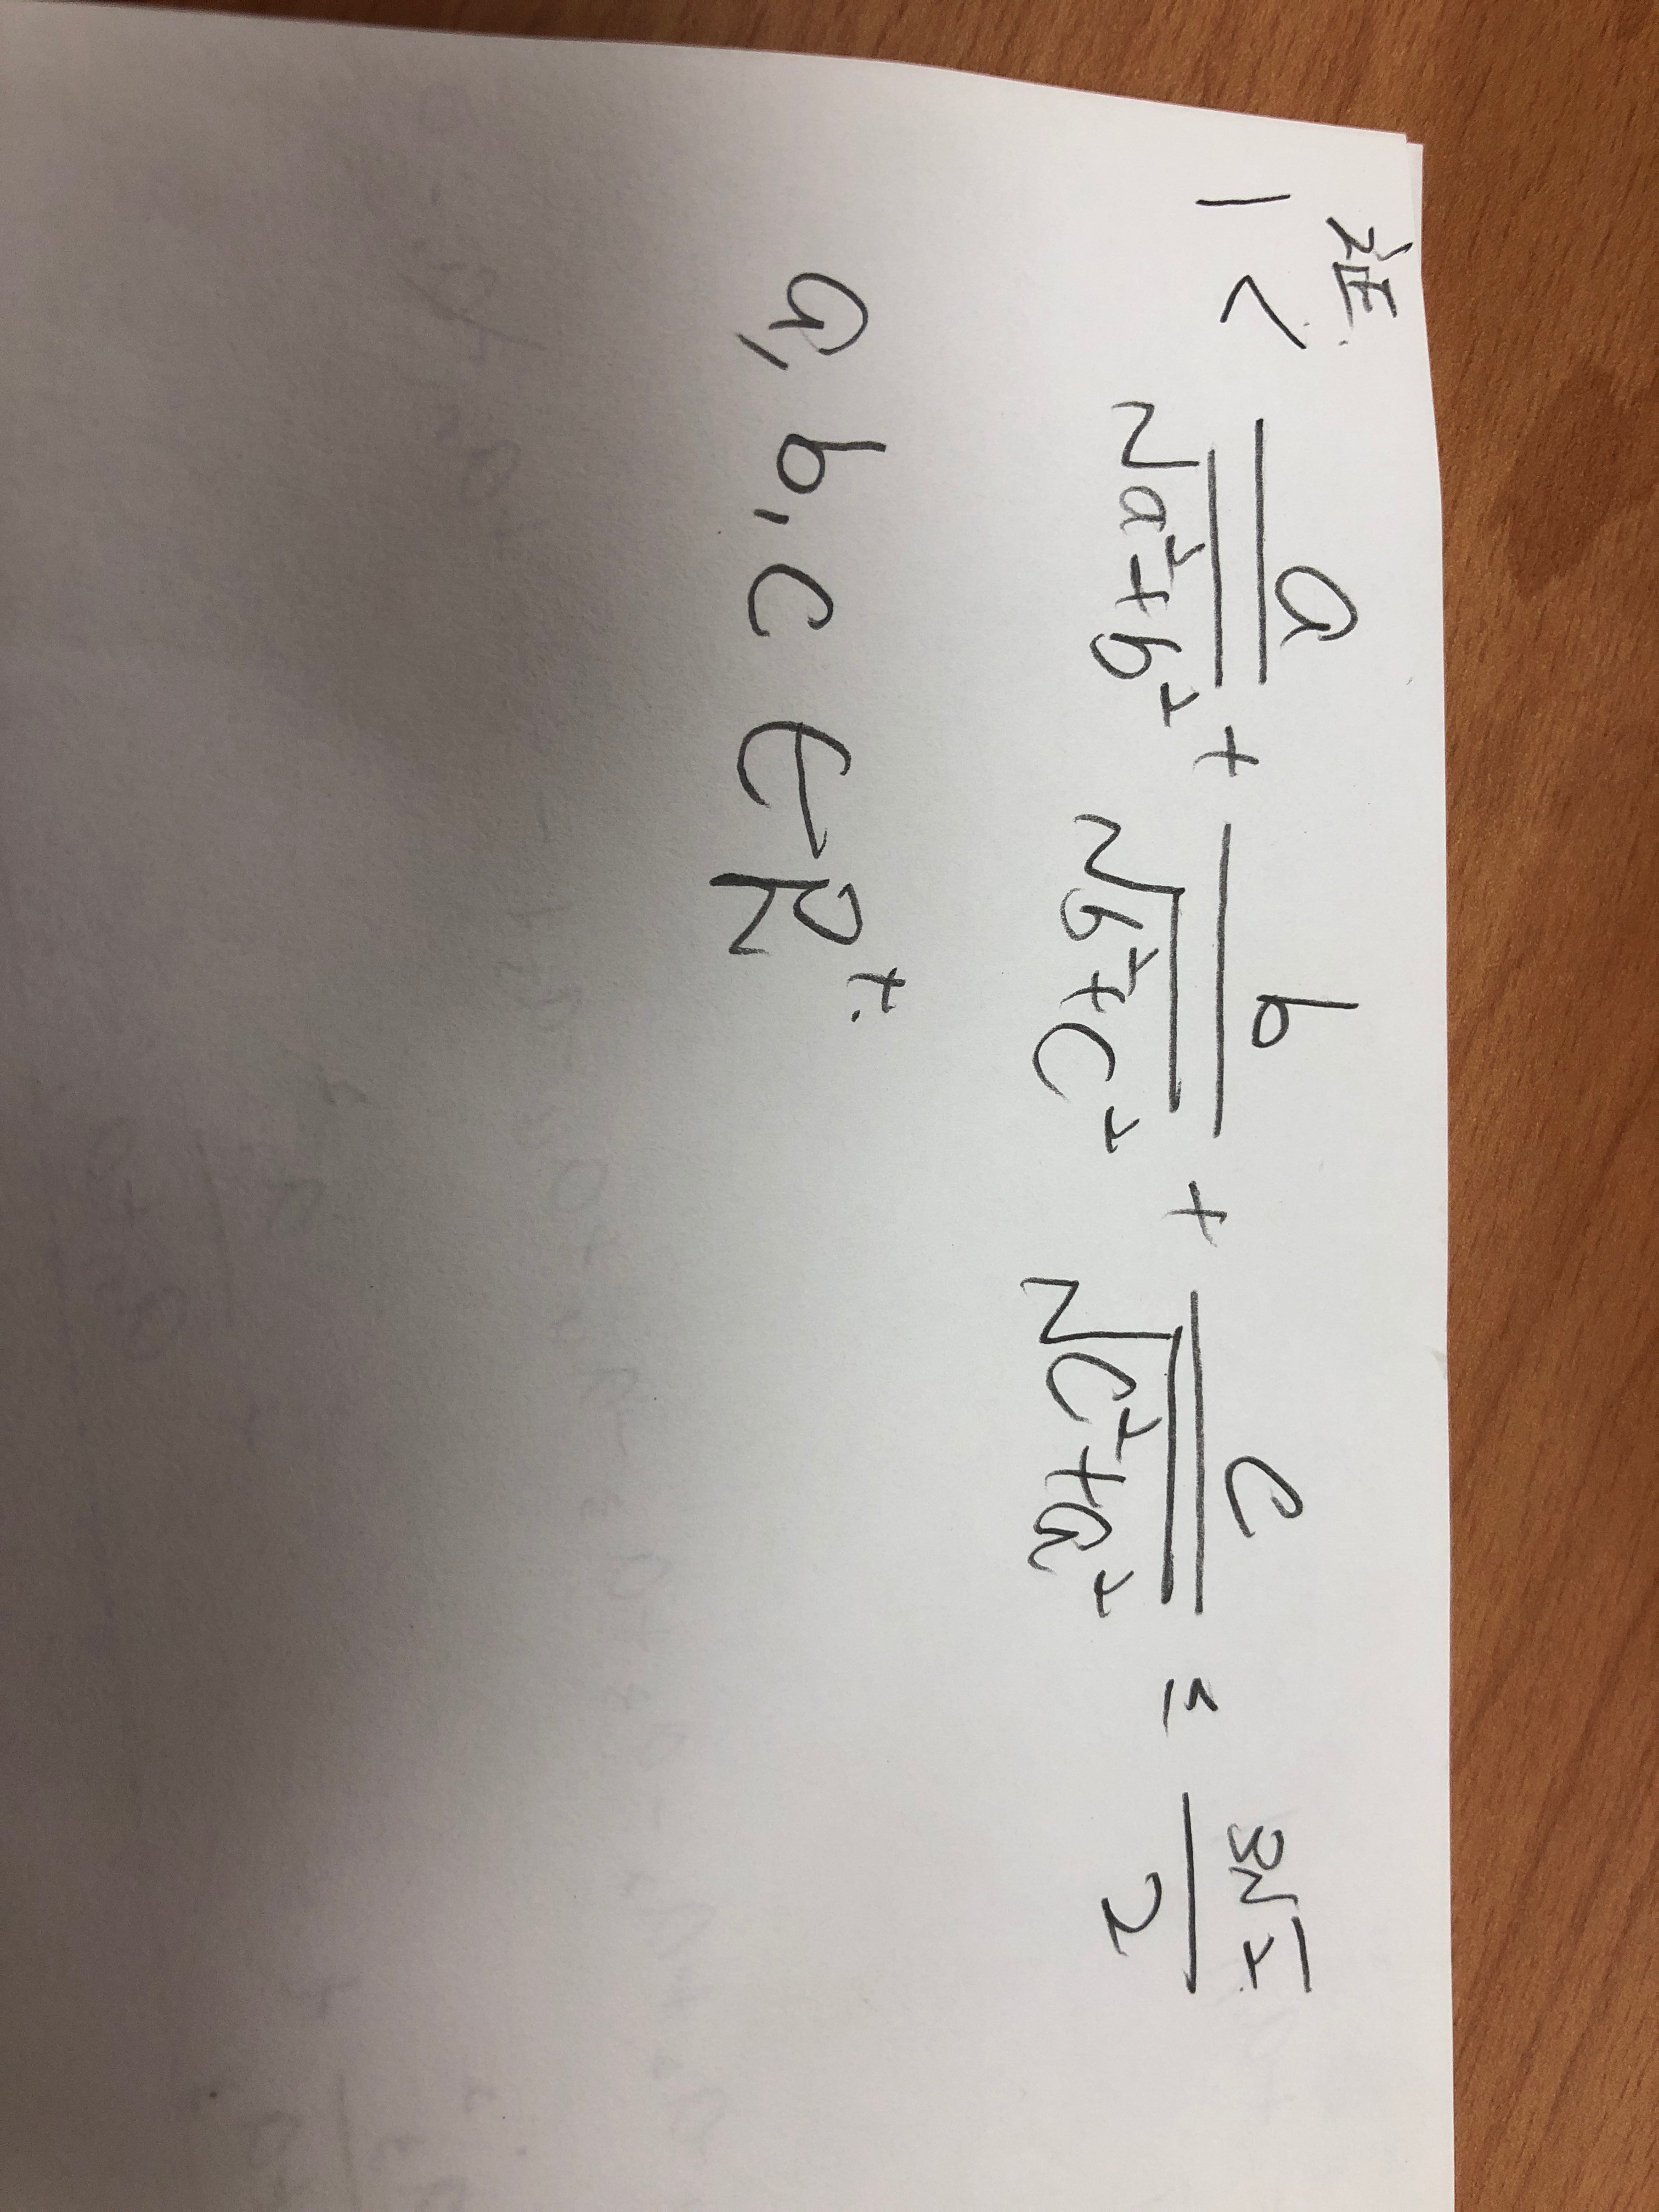 证:
1 < a/√(a²+b²) + b/√(b²+c²) + c/√(c²+a²) ≤ 3√2/2
a, b, c ∈ R⁺.